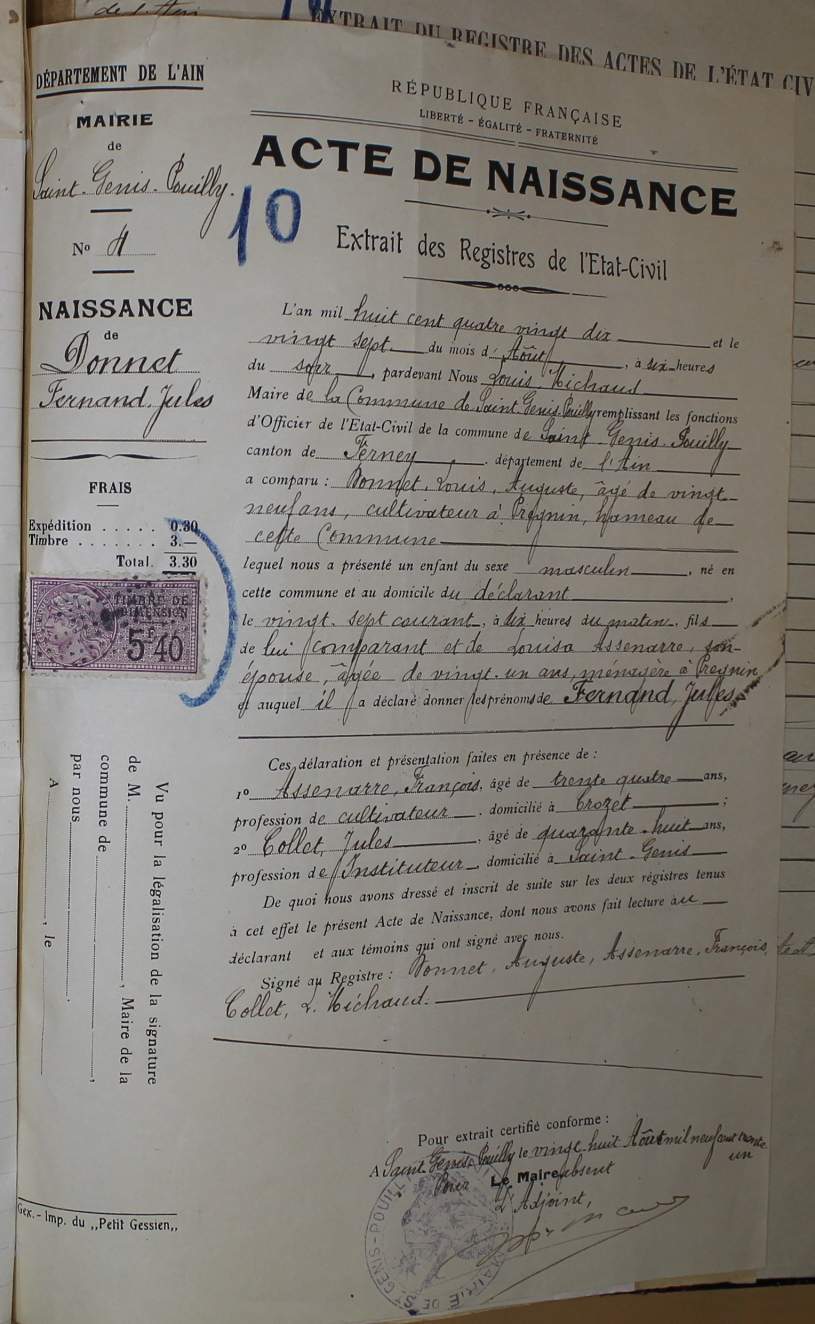 de l'Ain
EXTRAIT DU REGISTRE DES ACTES DE L'ÉTAT CIV
DÉPARTEMENT DE L'AIN
MAIRIE
de
Saint-Genis-Pouilly.
Nº 4
NAISSANCE
de
Donnet
Fernand, Jules
FRAIS
Expédition ..... 0.30
Timbre ....... 3.—
Total. 3.30
TIMBRE DE
DIMENSION
5F40
Vu pour la légalisation de la signature
de M. , Maire de la
commune de ,
par nous .
A , le
Gex. - Imp. du „Petit Gessien„
10
RÉPUBLIQUE FRANÇAISE
LIBERTÉ - ÉGALITÉ - FRATERNITÉ
ACTE DE NAISSANCE
Extrait des Registres de l'Etat-Civil
L'an mil huit cent quatre vingt dix et le
vingt sept du mois d'Août , à six heures
du soir , pardevant Nous Louis Michaud
Maire de la Commune de Saint-Genis-Pouilly remplissant les fonctions
d'Officier de l'Etat-Civil de la commune de Saint-Genis-Pouilly
canton de Ferney , département de l'Ain
a comparu : Donnet, Louis, Auguste, âgé de vingt-
neuf ans, cultivateur à Pregnin, hameau de
cette Commune
lequel nous a présenté un enfant du sexe masculin , né en
cette commune et au domicile du déclarant ,
le vingt-sept courant, à dix heures du matin, fils
de lui comparant et de Louisa Assenarre, son
épouse, âgée de vingt-un ans, ménagère à Pregnin
et auquel il a déclaré donner les prénoms de Fernand, Jules
Ces déclaration et présentation faites en présence de :
1º Assenarre, François, âgé de trente quatre ans,
profession de cultivateur , domicilié à Crozet ;
2º Collet, Jules , âgé de quarante-huit ans,
profession de Instituteur , domicilié à Saint-Genis
De quoi nous avons dressé et inscrit de suite sur les deux régistres tenus
à cet effet le présent Acte de Naissance, dont nous avons fait lecture au
déclarant et aux témoins qui ont signé avec nous.
Signé au Registre : Donnet, Auguste, Assenarre, François,
Collet, L. Michaud.
Pour extrait certifié conforme :
A Saint-Genis-Pouilly le vingt huit Août mil neuf cent trente
un
Pour Le Maire absent
L'Adjoint,
MAIRIE DE ST GENIS-POUILLY